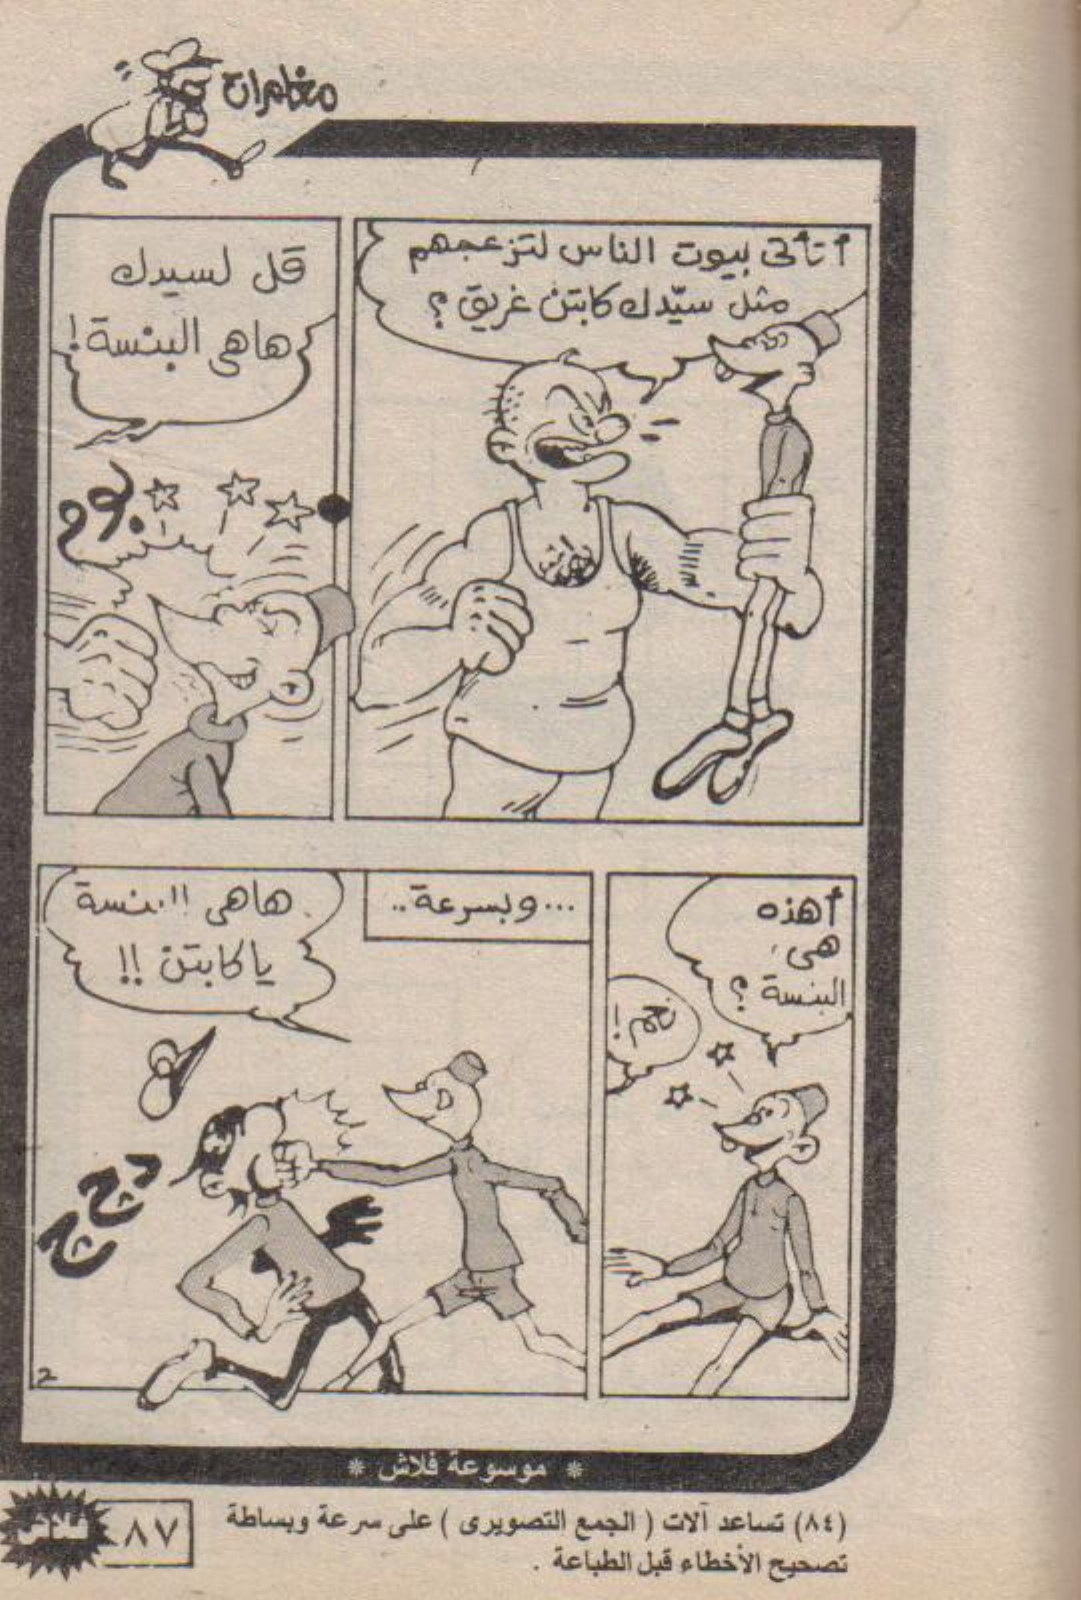 مغامرات
أتأتى بيوت الناس لتزعجهم
مثل سيّدك كابتن غريق ؟
قل لسيدك
هاهى البنسة !
بوم
أهذه
هى
البنسة ؟
نعم !
...وبسرعة..
هاهى البنسة
يا كابتن !!
2
* موسوعة فلاش *
(٨٤) تساعد آلات ( الجمع التصويرى ) على سرعة وبساطة
تصحيح الأخطاء قبل الطباعة .
٨٧